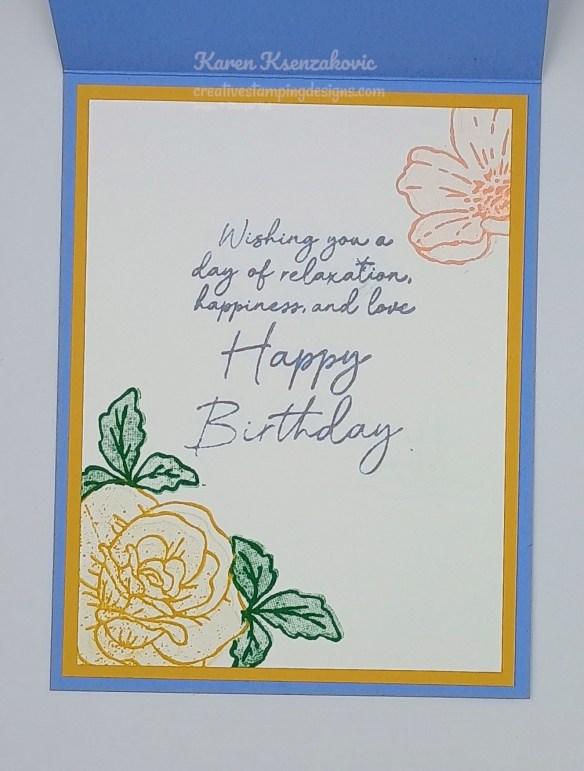 Karen Ksenzakovic
creativestampingdesigns.com
Wishing you a
day of relaxation,
happiness, and love
Happy
Birthday